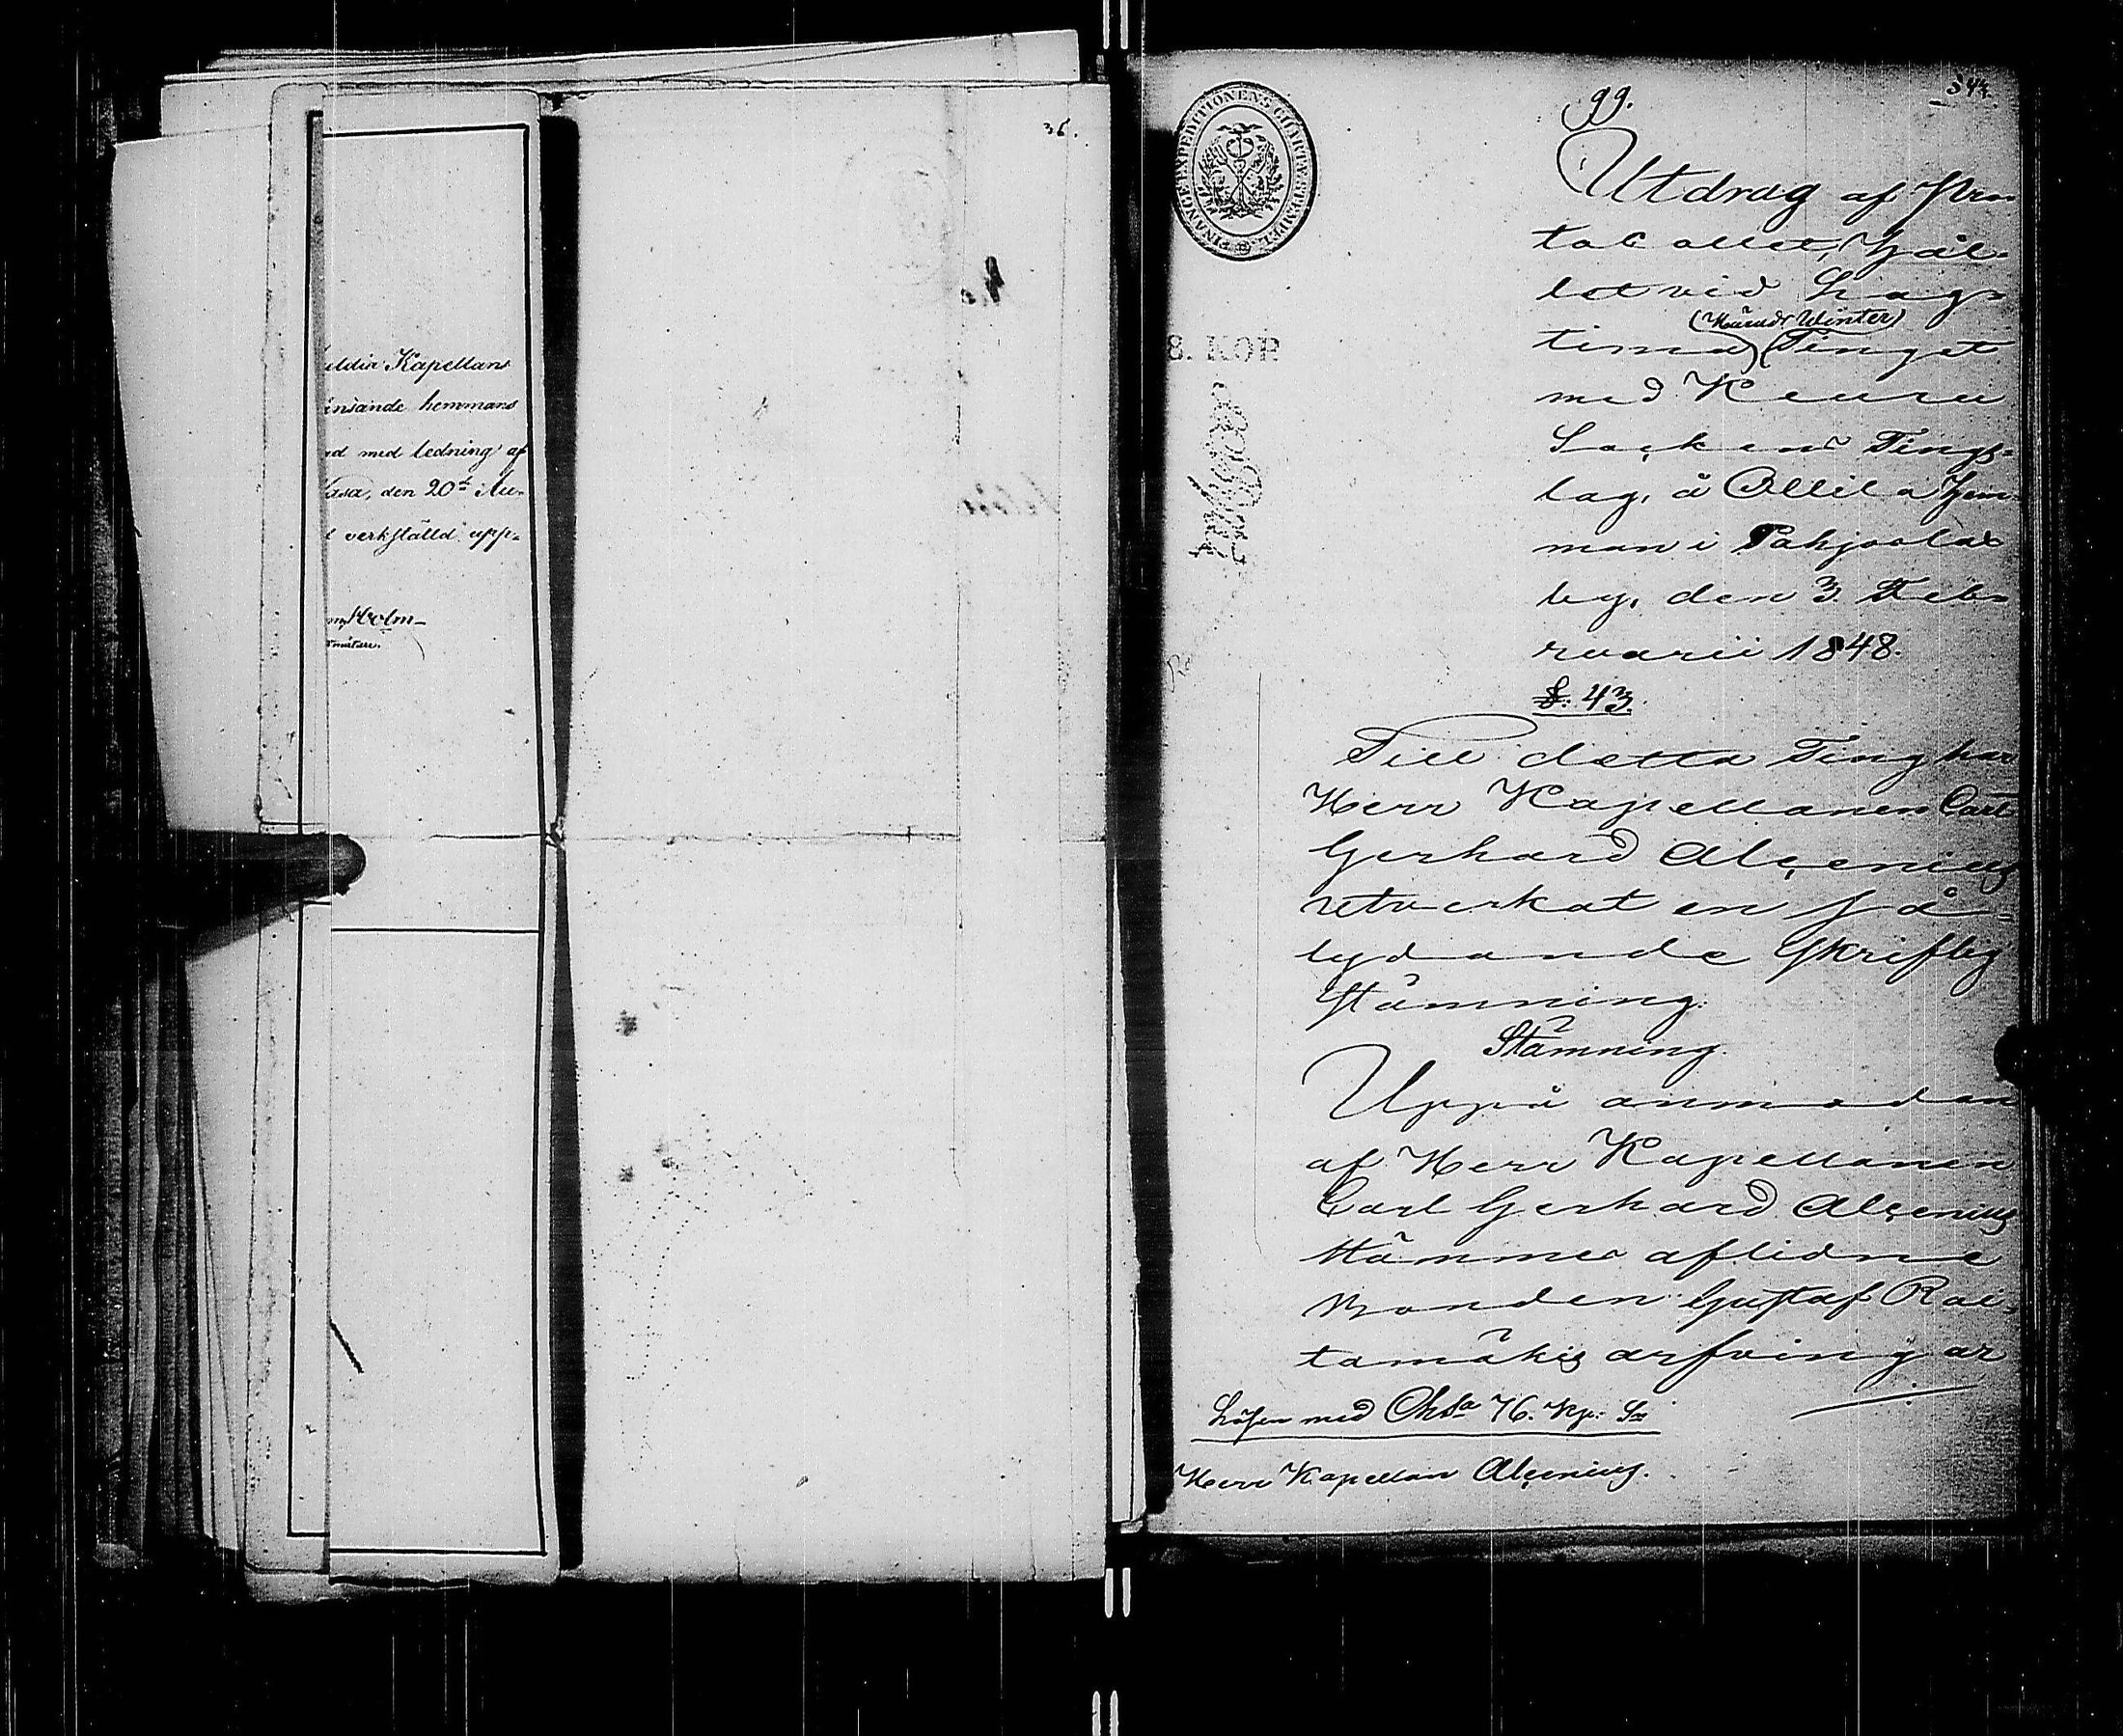 uldia Kapellans
änsande hemmans
ad med ledning af
Vasa, den 20de Au-
t verkställd upp-
Holm
36.
FINANCE EXPEDITIONENS CHARTÆ STEMPEL
8. KOP
99.
544.
Utdrag af Pro-
tocollet, hål-
let vid Lag-
(Härads Winter)
tima Tinget
med Keuru
Sockens Tings-
lag, å Ollila hem-
man i Pohjoslax
by, den 3. Feb-
ruarii 1848.
§. 43.
Till detta Ting har
Herr Kapellanen Carl
Gerhard Alcenius
utverkat en så-
lydande skriftlig
stämning.
Stämning.
Uppå anmodan
af Herr Kapellanen
Carl Gerhard Alcenius
stämmes aflidne
Bonden Gustaf Rai-
tamäkis arfvingar
Lösen med Chta 76. Kop. Sr
Herr Kapellan Alcenius.